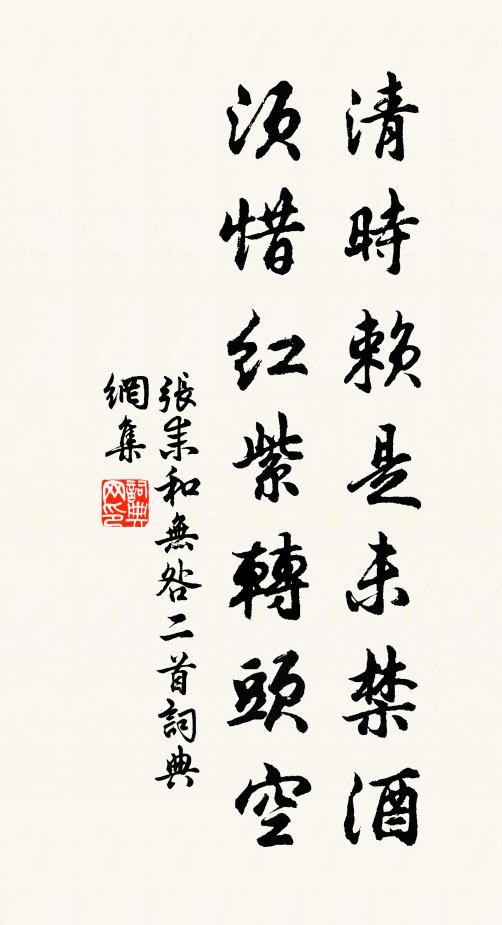 清時賴是未禁酒
須惜紅紫轉頭空
張耒和無咎二首詞典
網集
詞典網印